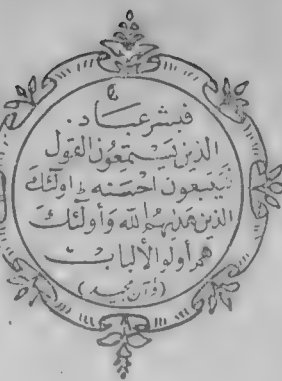 فبشر عبـــاد.
الذين يستمعون القول
فيتبعون احسنه ط اولئك
الذين هدىهم الله وأولئك
هم أولو الألباب
(قرآن مجيد)